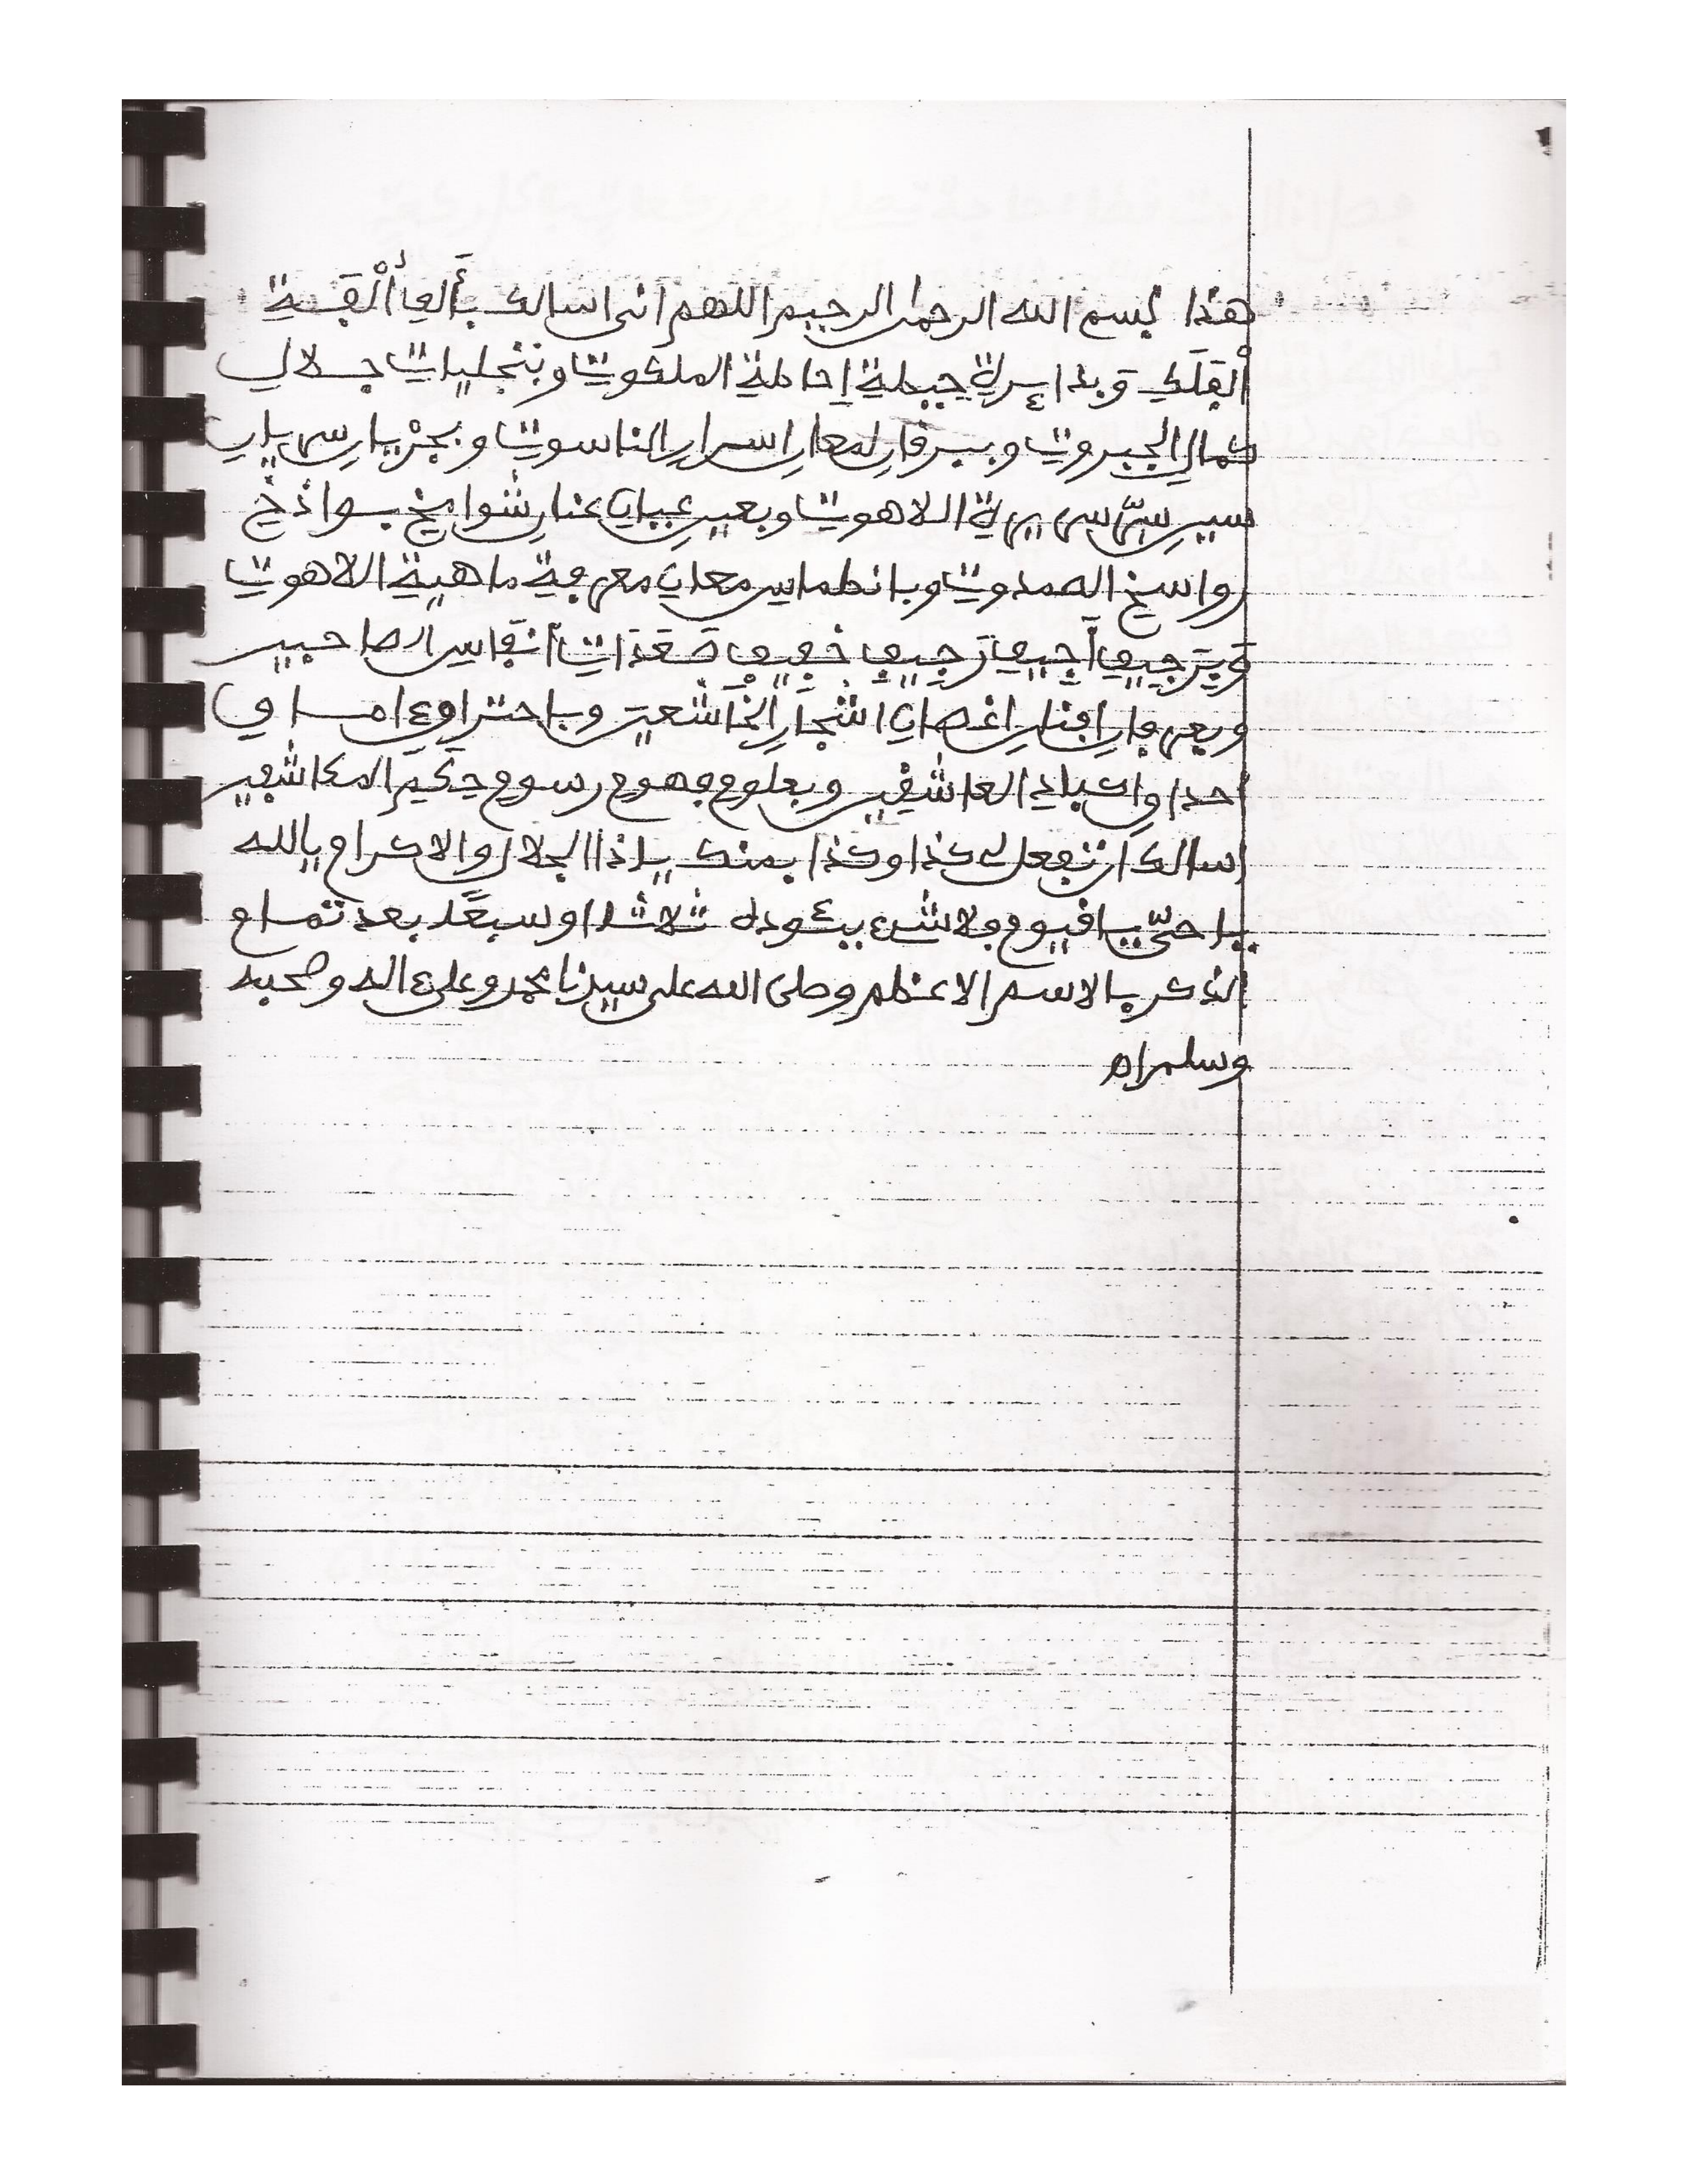 هذا بسم الله الرحمن الرحيم اللهم انى اسالك بألف ألفة
ألفلك وبدائرة حيطة إحاطة الملكوت وبتجليات جلال
كمال الجبروت وببرقان لمعان اسرار الناسوت وبجريان سريان
سير سرّ سريرة الاهوت وبعير عنان شوامخ بواذخ
رواسخ الصمدوت وبانطماس معان معرفة ماهية الاهوت
وبرجيف أجيف رجيف خفيف صعدات أنفاس الصاحبين
وبعرفان افنان اغصان اشجار الخاشعين وباحتراق امــاق
احداق اكباد العاشقين وبعلوم فهوم رسوم حكيم المكاشفين
اسالك ان تفعل لى كذا وكذا بمنك ياذا الجلال والاكرام يالله
يا حىّ يا قيوم ولا شىء يئوده ثلاثا او سبعا بعد تمــام
الذكر بالاسم الاعظم وصلى الله على سيدنا محمد وعلى ءاله وصحبه
وسلم اه